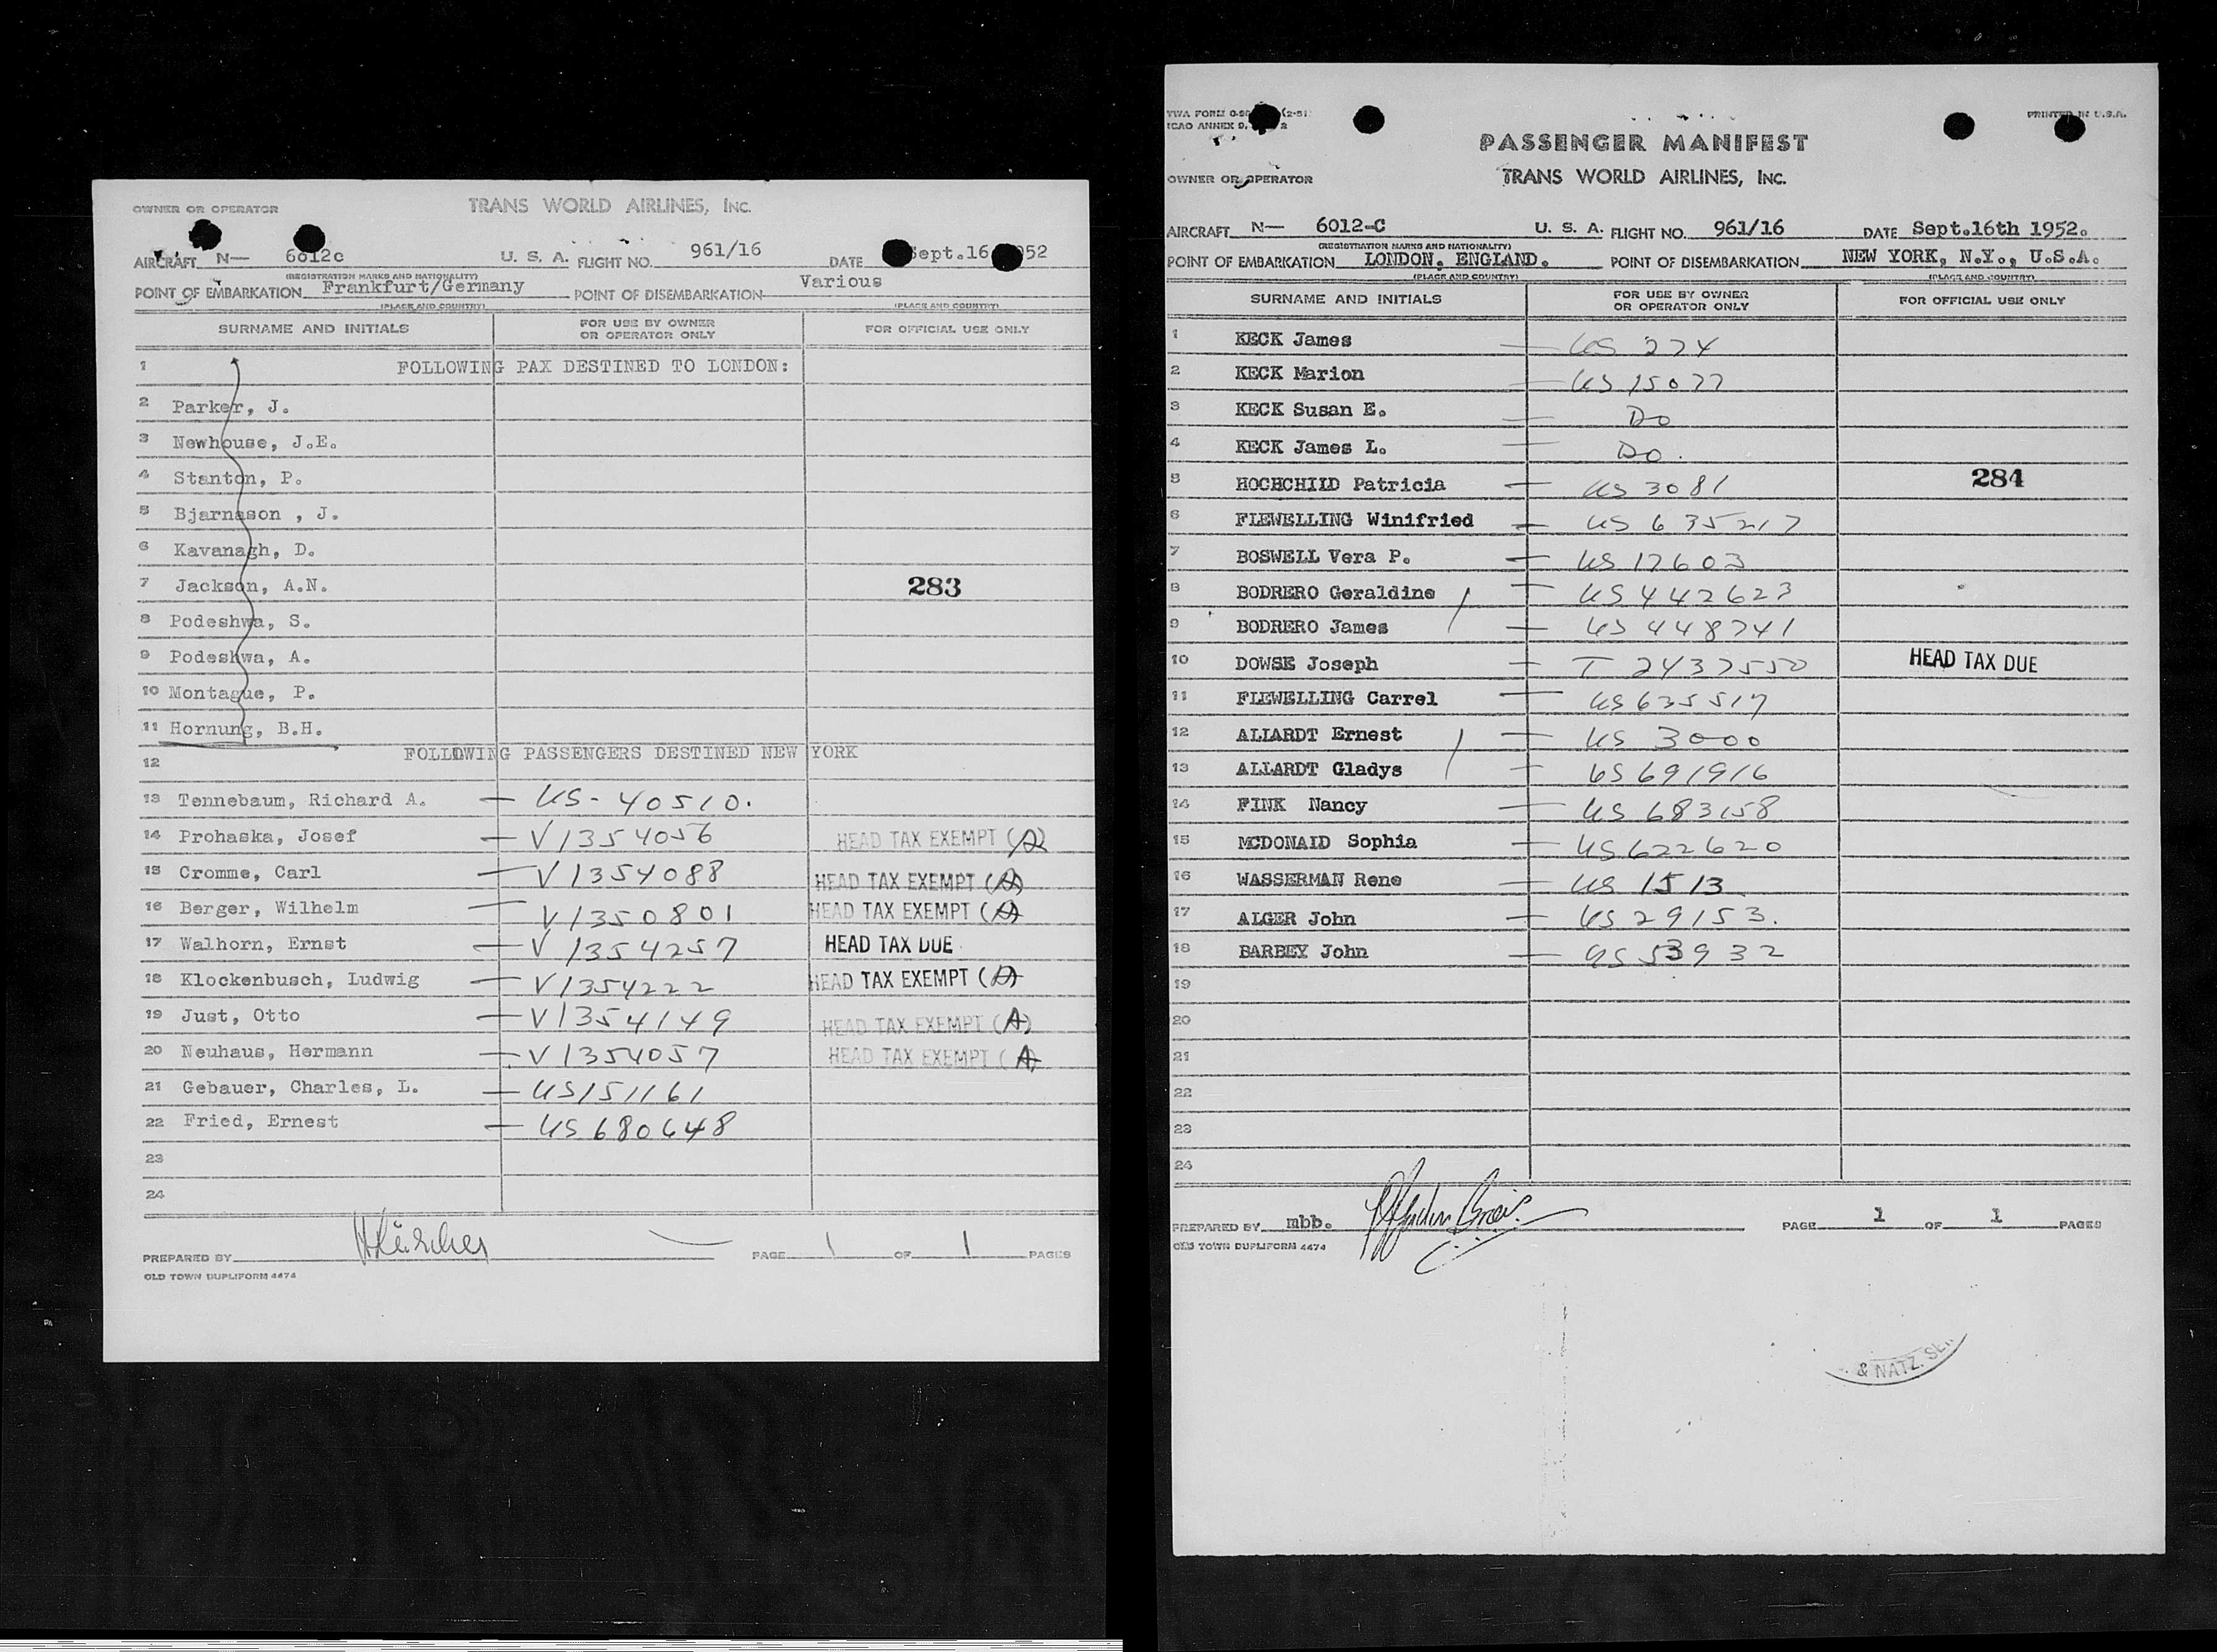 OWNER OR OPERATOR TRANS WORLD AIRLINES, INC.
AIRCRAFT N— 6012c U. S. A. FLIGHT NO. 961/16 DATE Sept.16 1952
(REGISTRATION MARKS AND NATIONALITY)
POINT OF EMBARKATION Frankfurt/Germany POINT OF DISEMBARKATION Various
(PLACE AND COUNTRY) (PLACE AND COUNTRY)
SURNAME AND INITIALS FOR USE BY OWNER OR OPERATOR ONLY FOR OFFICIAL USE ONLY
1 FOLLOWING PAX DESTINED TO LONDON:
2 Parker, J.
3 Newhouse, J.E.
4 Stanton, P.
5 Bjarnason , J.
6 Kavanagh, D.
7 Jackson, A.N. 283
8 Podeshwa, S.
9 Podeshwa, A.
10 Montague, P.
11 Hornung, B.H.
12 FOLLOWING PASSENGERS DESTINED NEW YORK
13 Tennebaum, Richard A. — US-40510.
14 Prohaska, Josef — V1354056 HEAD TAX EXEMPT (A)
15 Cromme, Carl — V1354088 HEAD TAX EXEMPT (A)
16 Berger, Wilhelm — V1350801 HEAD TAX EXEMPT (A)
17 Walhorn, Ernst — V1354257 HEAD TAX DUE
18 Klockenbusch, Ludwig — V1354222 HEAD TAX EXEMPT (A)
19 Just, Otto — V1354149 HEAD TAX EXEMPT (A)
20 Neuhaus, Hermann — V1354057 HEAD TAX EXEMPT (A)
21 Gebauer, Charles, L. — US151161
22 Fried, Ernest — US680648
23
24
PREPARED BY PAGE 1 OF 1 PAGES
OLD TOWN DUPLIFORM 4474
TWA FORM (2-51) PRINTED IN U.S.A.
ICAO ANNEX 9,
PASSENGER MANIFEST
OWNER OR OPERATOR TRANS WORLD AIRLINES, INC.
AIRCRAFT N— 6012-C U. S. A. FLIGHT NO. 961/16 DATE Sept.16th 1952.
(REGISTRATION MARKS AND NATIONALITY)
POINT OF EMBARKATION LONDON. ENGLAND. POINT OF DISEMBARKATION NEW YORK, N.Y., U.S.A.
(PLACE AND COUNTRY) (PLACE AND COUNTRY)
SURNAME AND INITIALS FOR USE BY OWNER OR OPERATOR ONLY FOR OFFICIAL USE ONLY
1 KECK James — US 274
2 KECK Marion — US 15077
3 KECK Susan E. — Do
4 KECK James L. — Do.
5 HOCHCHILD Patricia — US 3081 284
6 FLEWELLING Winifried — US 635217
7 BOSWELL Vera P. — US 17603
8 BODRERO Geraldine — US 442623
9 BODRERO James — US 448741
10 DOWSE Joseph — T 2437550 HEAD TAX DUE
11 FLEWELLING Carrel — US 635517
12 ALLARDT Ernest — US 3000
13 ALLARDT Gladys — US 691916
14 FINK Nancy — US 683158
15 MCDONALD Sophia — US 622620
16 WASSERMAN Rene — US 1513
17 ALGER John — US 29153.
18 BARBEY John — US 53932
19
20
21
22
23
24
PREPARED BY mbb. PAGE 1 OF 1 PAGES
OLD TOWN DUPLIFORM 4474
& NATZ. SE